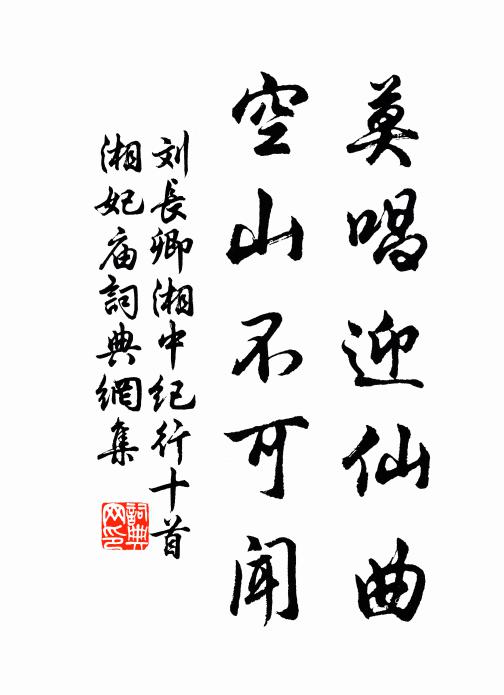 莫唱迎仙曲
空山不可闻
刘長卿湘中纪行十首
湘妃庙詞典網集
詞典
网印